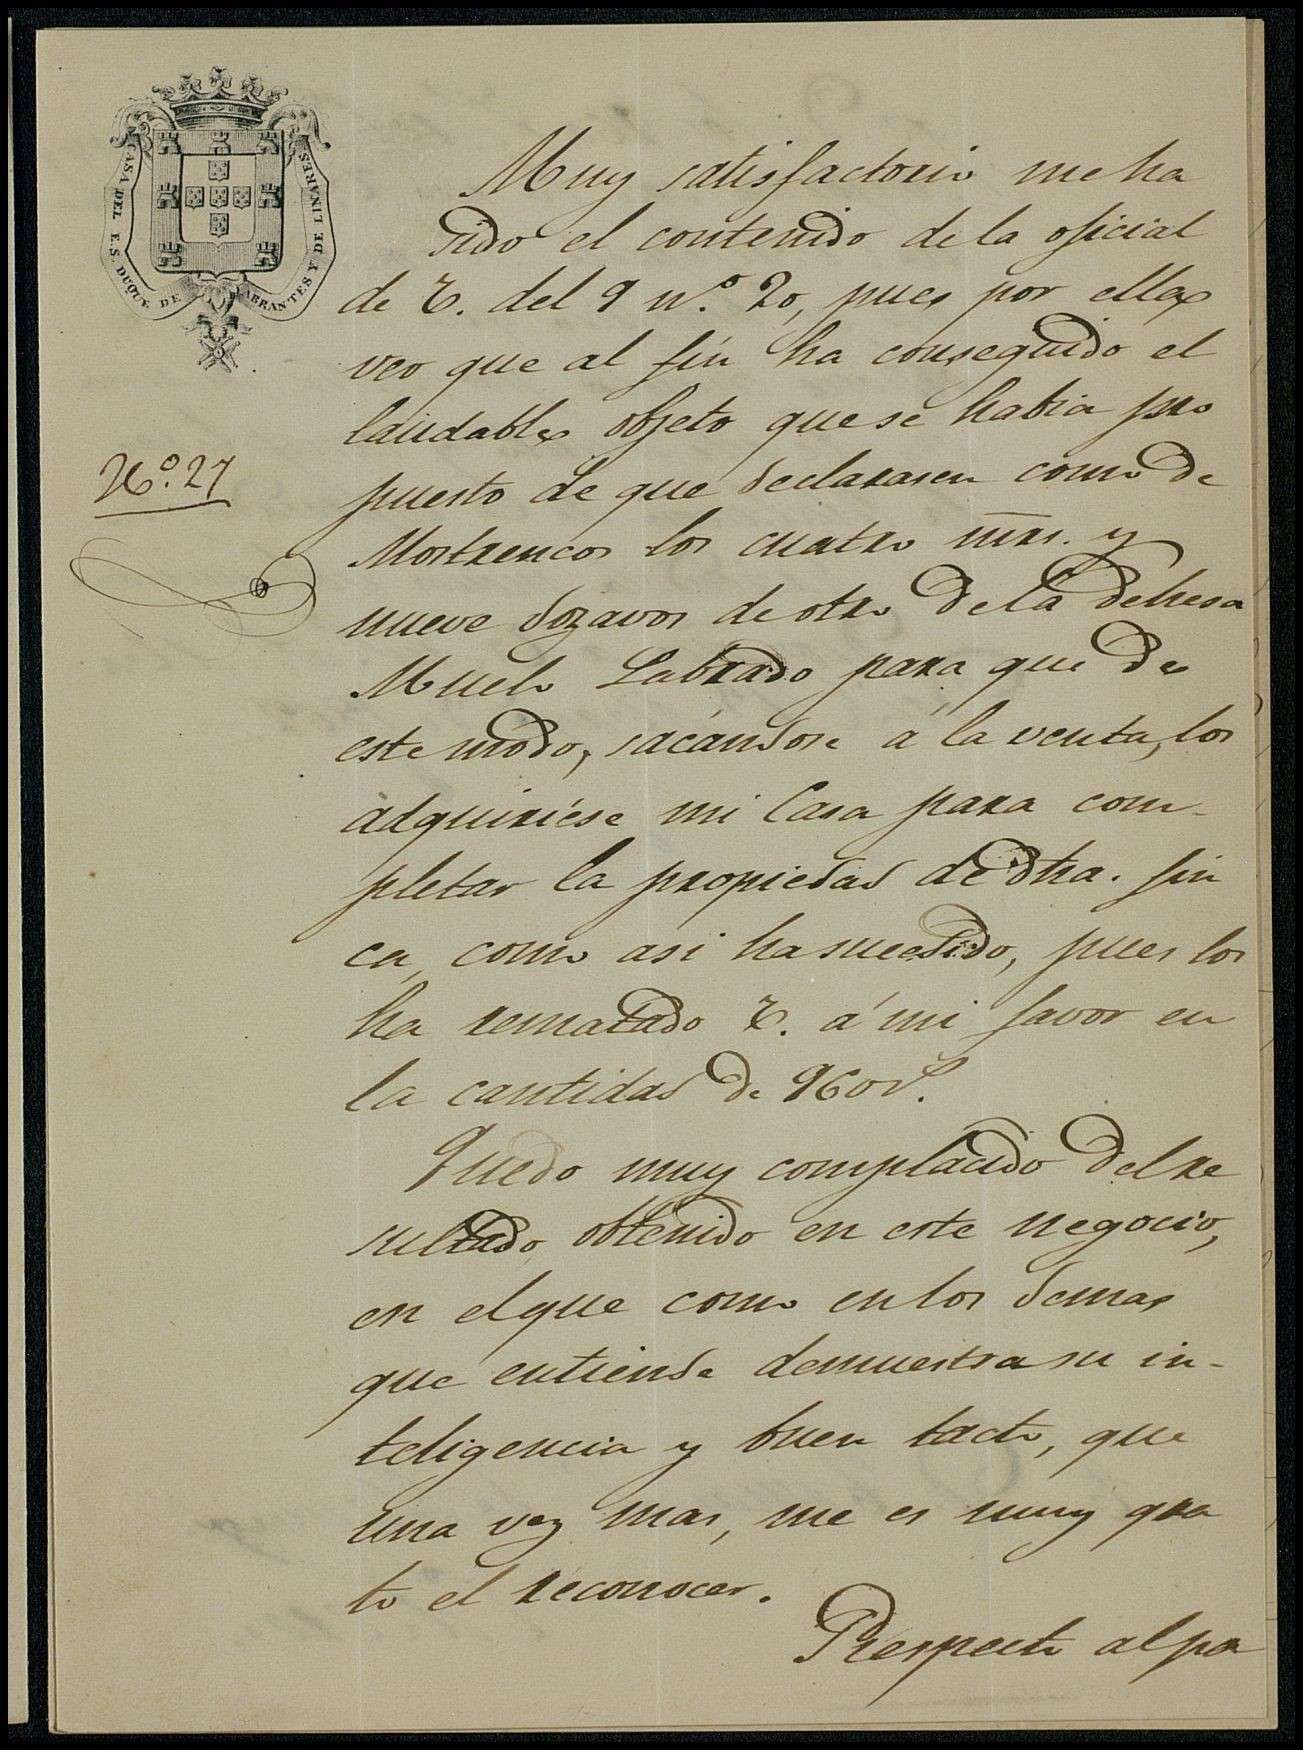 CASA DEL E. S. DUQUE DE ABRANTES Y DE LINARES
Muy satisfactorio me ha
sido el contenido de la oficial
de V. del 9 nº. 20, pues por ella
veo que al fin ha conseguido el
laudable objeto que se habia pro
Nº. 27
puesto de que declarasen como de
Mostrencos los cuatro mrs. y
nueve dozavos de otro de la dehesa
Muelo Labrado para que de
este modo, sacándose á la venta, los
adquiriése mi Casa para com-
pletar la propiedad de dha. fin
ca, como asi ha sucedido, pues los
ha rematado V. á mi favor en
la cantidad de 960 r.
Quedo muy complacido del re
sultado obtenido en este negocio,
en el que como en los demas
que entiende demuestra su in-
teligencia y buen tacto, que
una vez mas, me es muy gra
to el reconocer.
Respecto al pa